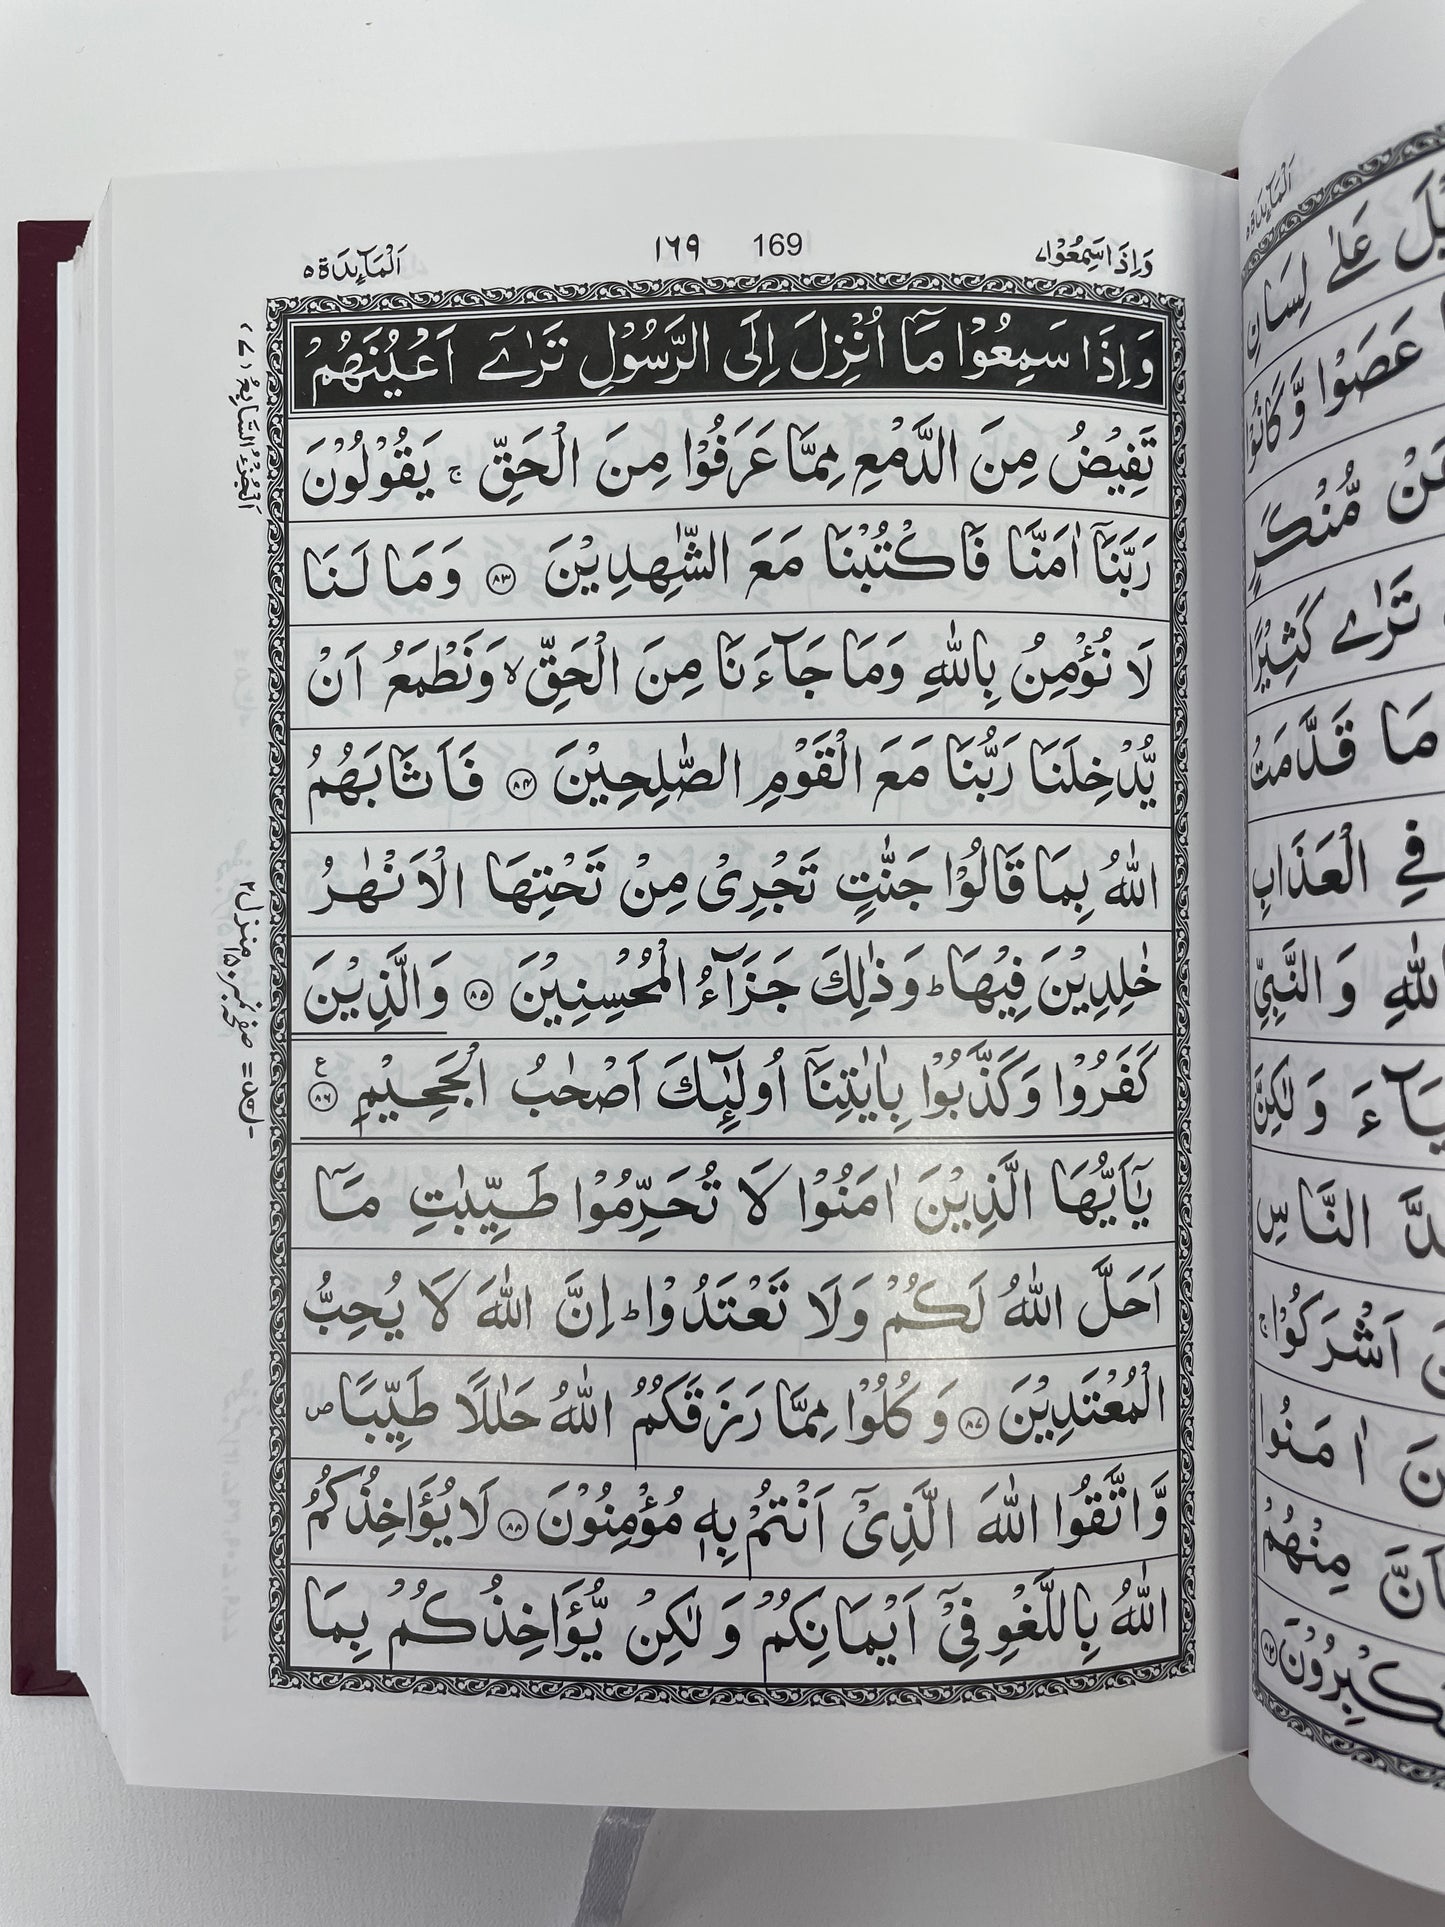 وَاِذَا سَمِعُوْا ٧
169
١٦٩
اَلْمَآىِٕدَة ٥
وَاِذَا سَمِعُوْا مَاۤ اُنْزِلَ اِلَى الرَّسُوْلِ تَرٰۤى اَعْيُنَهُمْ
تَفِيْضُ مِنَ الدَّمْعِ مِمَّا عَرَفُوْا مِنَ الْحَقِّ ۚ يَقُوْلُوْنَ
رَبَّنَاۤ اٰمَنَّا فَاكْتُبْنَا مَعَ الشّٰهِدِيْنَ ﴿٨٣﴾ وَمَا لَنَا
لَا نُؤْمِنُ بِاللّٰهِ وَمَا جَآءَنَا مِنَ الْحَقِّ ۙ وَنَطْمَعُ اَنْ
يُّدْخِلَنَا رَبُّنَا مَعَ الْقَوْمِ الصّٰلِحِيْنَ ﴿٨٤﴾ فَاَثَابَهُمُ
اللّٰهُ بِمَا قَالُوْا جَنّٰتٍ تَجْرِىْ مِنْ تَحْتِهَا الْاَنْهٰرُ
خٰلِدِيْنَ فِيْهَا ؕ وَذٰلِكَ جَزَآءُ الْمُحْسِنِيْنَ ﴿٨٥﴾ وَالَّذِيْنَ
كَفَرُوْا وَكَذَّبُوْا بِاٰيٰتِنَاۤ اُولٰٓىِٕكَ اَصْحٰبُ الْجَحِيْمِ ﴿٨٦﴾ ع
يٰۤاَيُّهَا الَّذِيْنَ اٰمَنُوْا لَا تُحَرِّمُوْا طَيِّبٰتِ مَاۤ
اَحَلَّ اللّٰهُ لَكُمْ وَلَا تَعْتَدُوْا ؕ اِنَّ اللّٰهَ لَا يُحِبُّ
الْمُعْتَدِيْنَ ﴿٨٧﴾ وَكُلُوْا مِمَّا رَزَقَكُمُ اللّٰهُ حَلٰلًا طَيِّبًا ۪
وَّاتَّقُوا اللّٰهَ الَّذِىْۤ اَنْتُمْ بِهٖ مُؤْمِنُوْنَ ﴿٨٨﴾ لَا يُؤَاخِذُكُمُ
اللّٰهُ بِاللَّغْوِ فِىْۤ اَيْمَانِكُمْ وَلٰكِنْ يُّؤَاخِذُكُمْ بِمَا
اَلْجُزْءُ السَّابِعُ (٧)
منزل ٢
اَلْمَآىِٕدَة ٥
عَلٰى لِسَانِ
عَصَوْا وَّكَانُوْا
مُّنْكَرٍ
تَرٰى كَثِيْرًا
مَا قَدَّمَتْ
فِى الْعَذَابِ
وَالنَّبِىِّ
وَلٰكِنَّ
النَّاسِ
اَشْرَكُوْا ۚ
اٰمَنُوا
مِنْهُمْ
﴿٨٢﴾